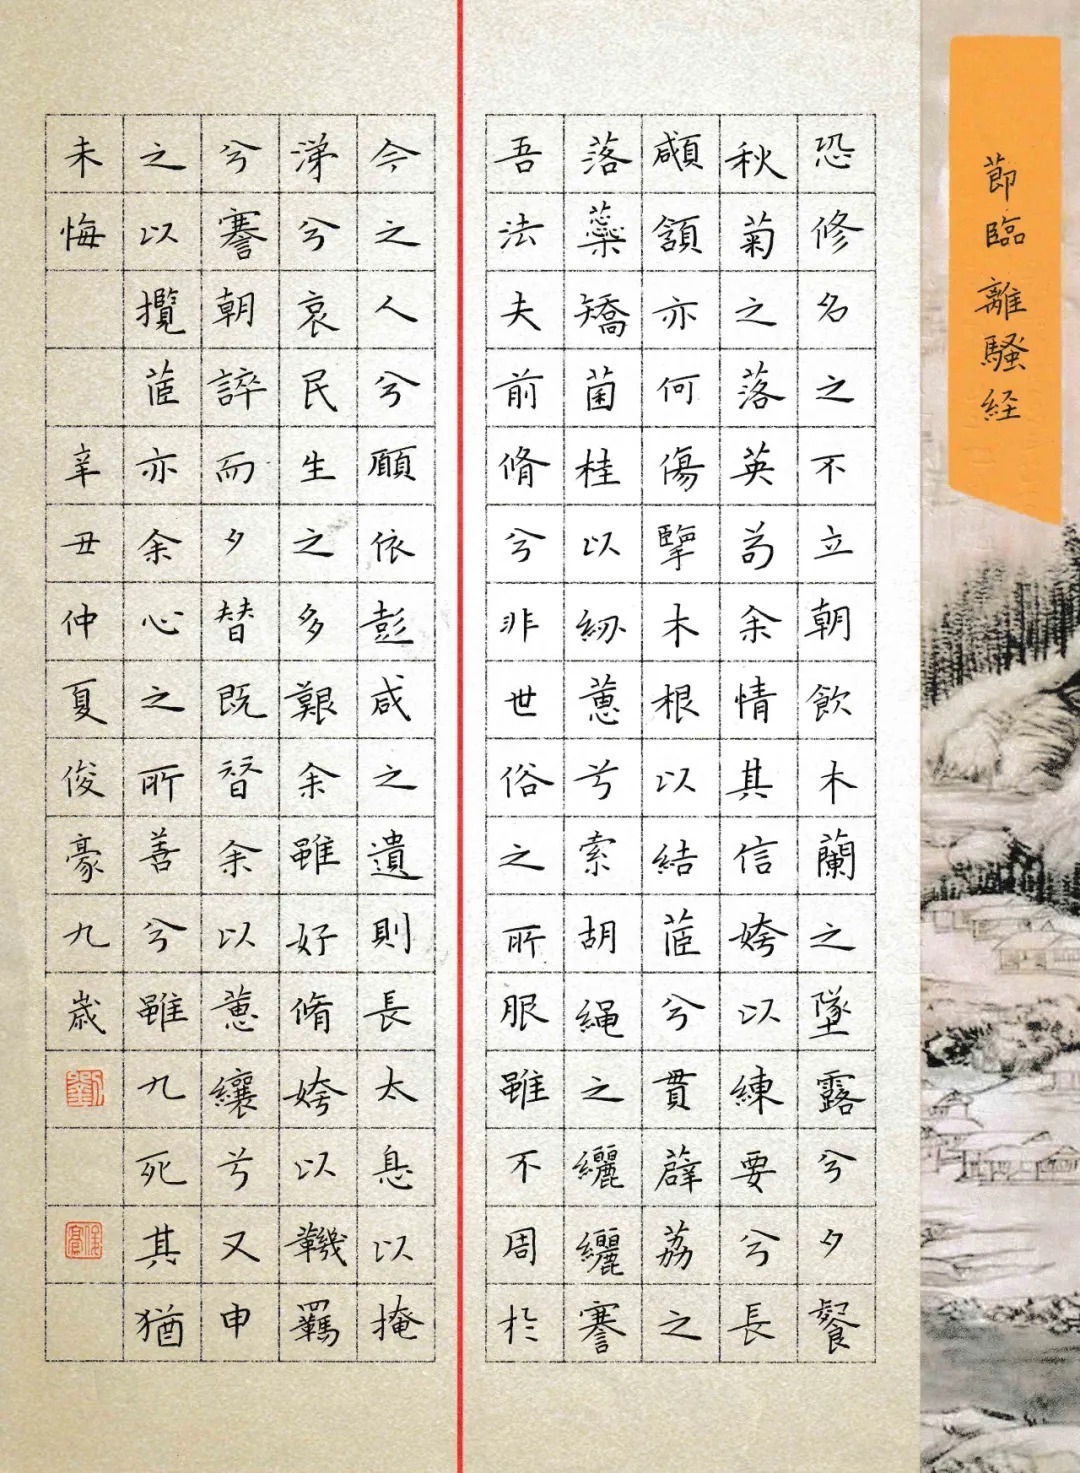 節臨離騷経
恐修名之不立朝飲木蘭之墜露兮夕餐
秋菊之落英苟余情其信姱以練要兮長
顑頷亦何傷擥木根以結茝兮貫薜荔之
落蘂矯菌桂以紉蕙兮索胡繩之纚纚謇
吾法夫前脩兮非世俗之所服雖不周於
今之人兮願依彭咸之遺則長太息以掩
涕兮哀民生之多艱余雖好脩姱以鞿羈
兮謇朝誶而夕替既替余以蕙纕兮又申
之以攬茝亦余心之所善兮雖九死其猶
未悔 辛丑仲夏俊豪九歲